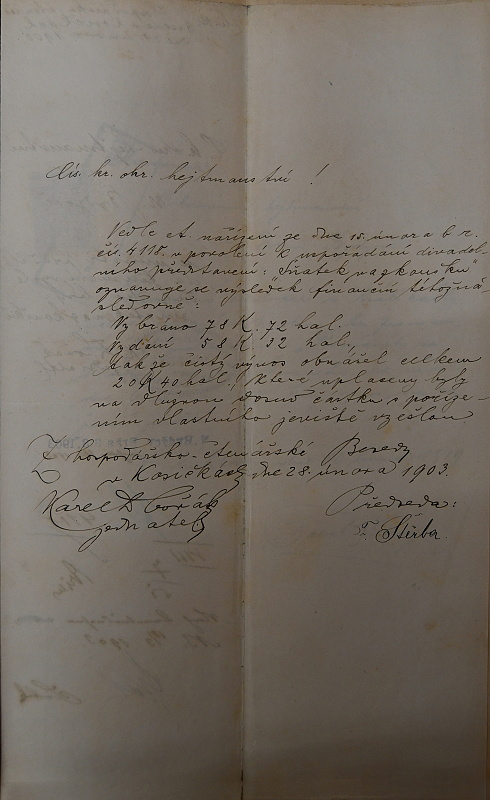 Cís. kr. okr. hejtmanství!
Vedle ct. nařízení ze dne 15. února b. r.
čís. 4118. v povolení k uspořádání divadel-
ního představení: "Sňatek na zkoušku"
oznamuje se výsledek finanční tohotéž ná-
sledovně:
Vybráno 78 K. 72 hal.
Vydání 58 K 32 hal.,
takže čistý výnos obnášel celkem
20 K 40 hal., které uplaceny byly
na dlužnou domů částku s poříze-
ním vlastního jeviště vzešlou.
Z hospodářsko-čtenářské Besedy
v Kosičkách, dne 28. února 1903.
Karel Dvořák Předseda:
jednatel F. Štěrba.